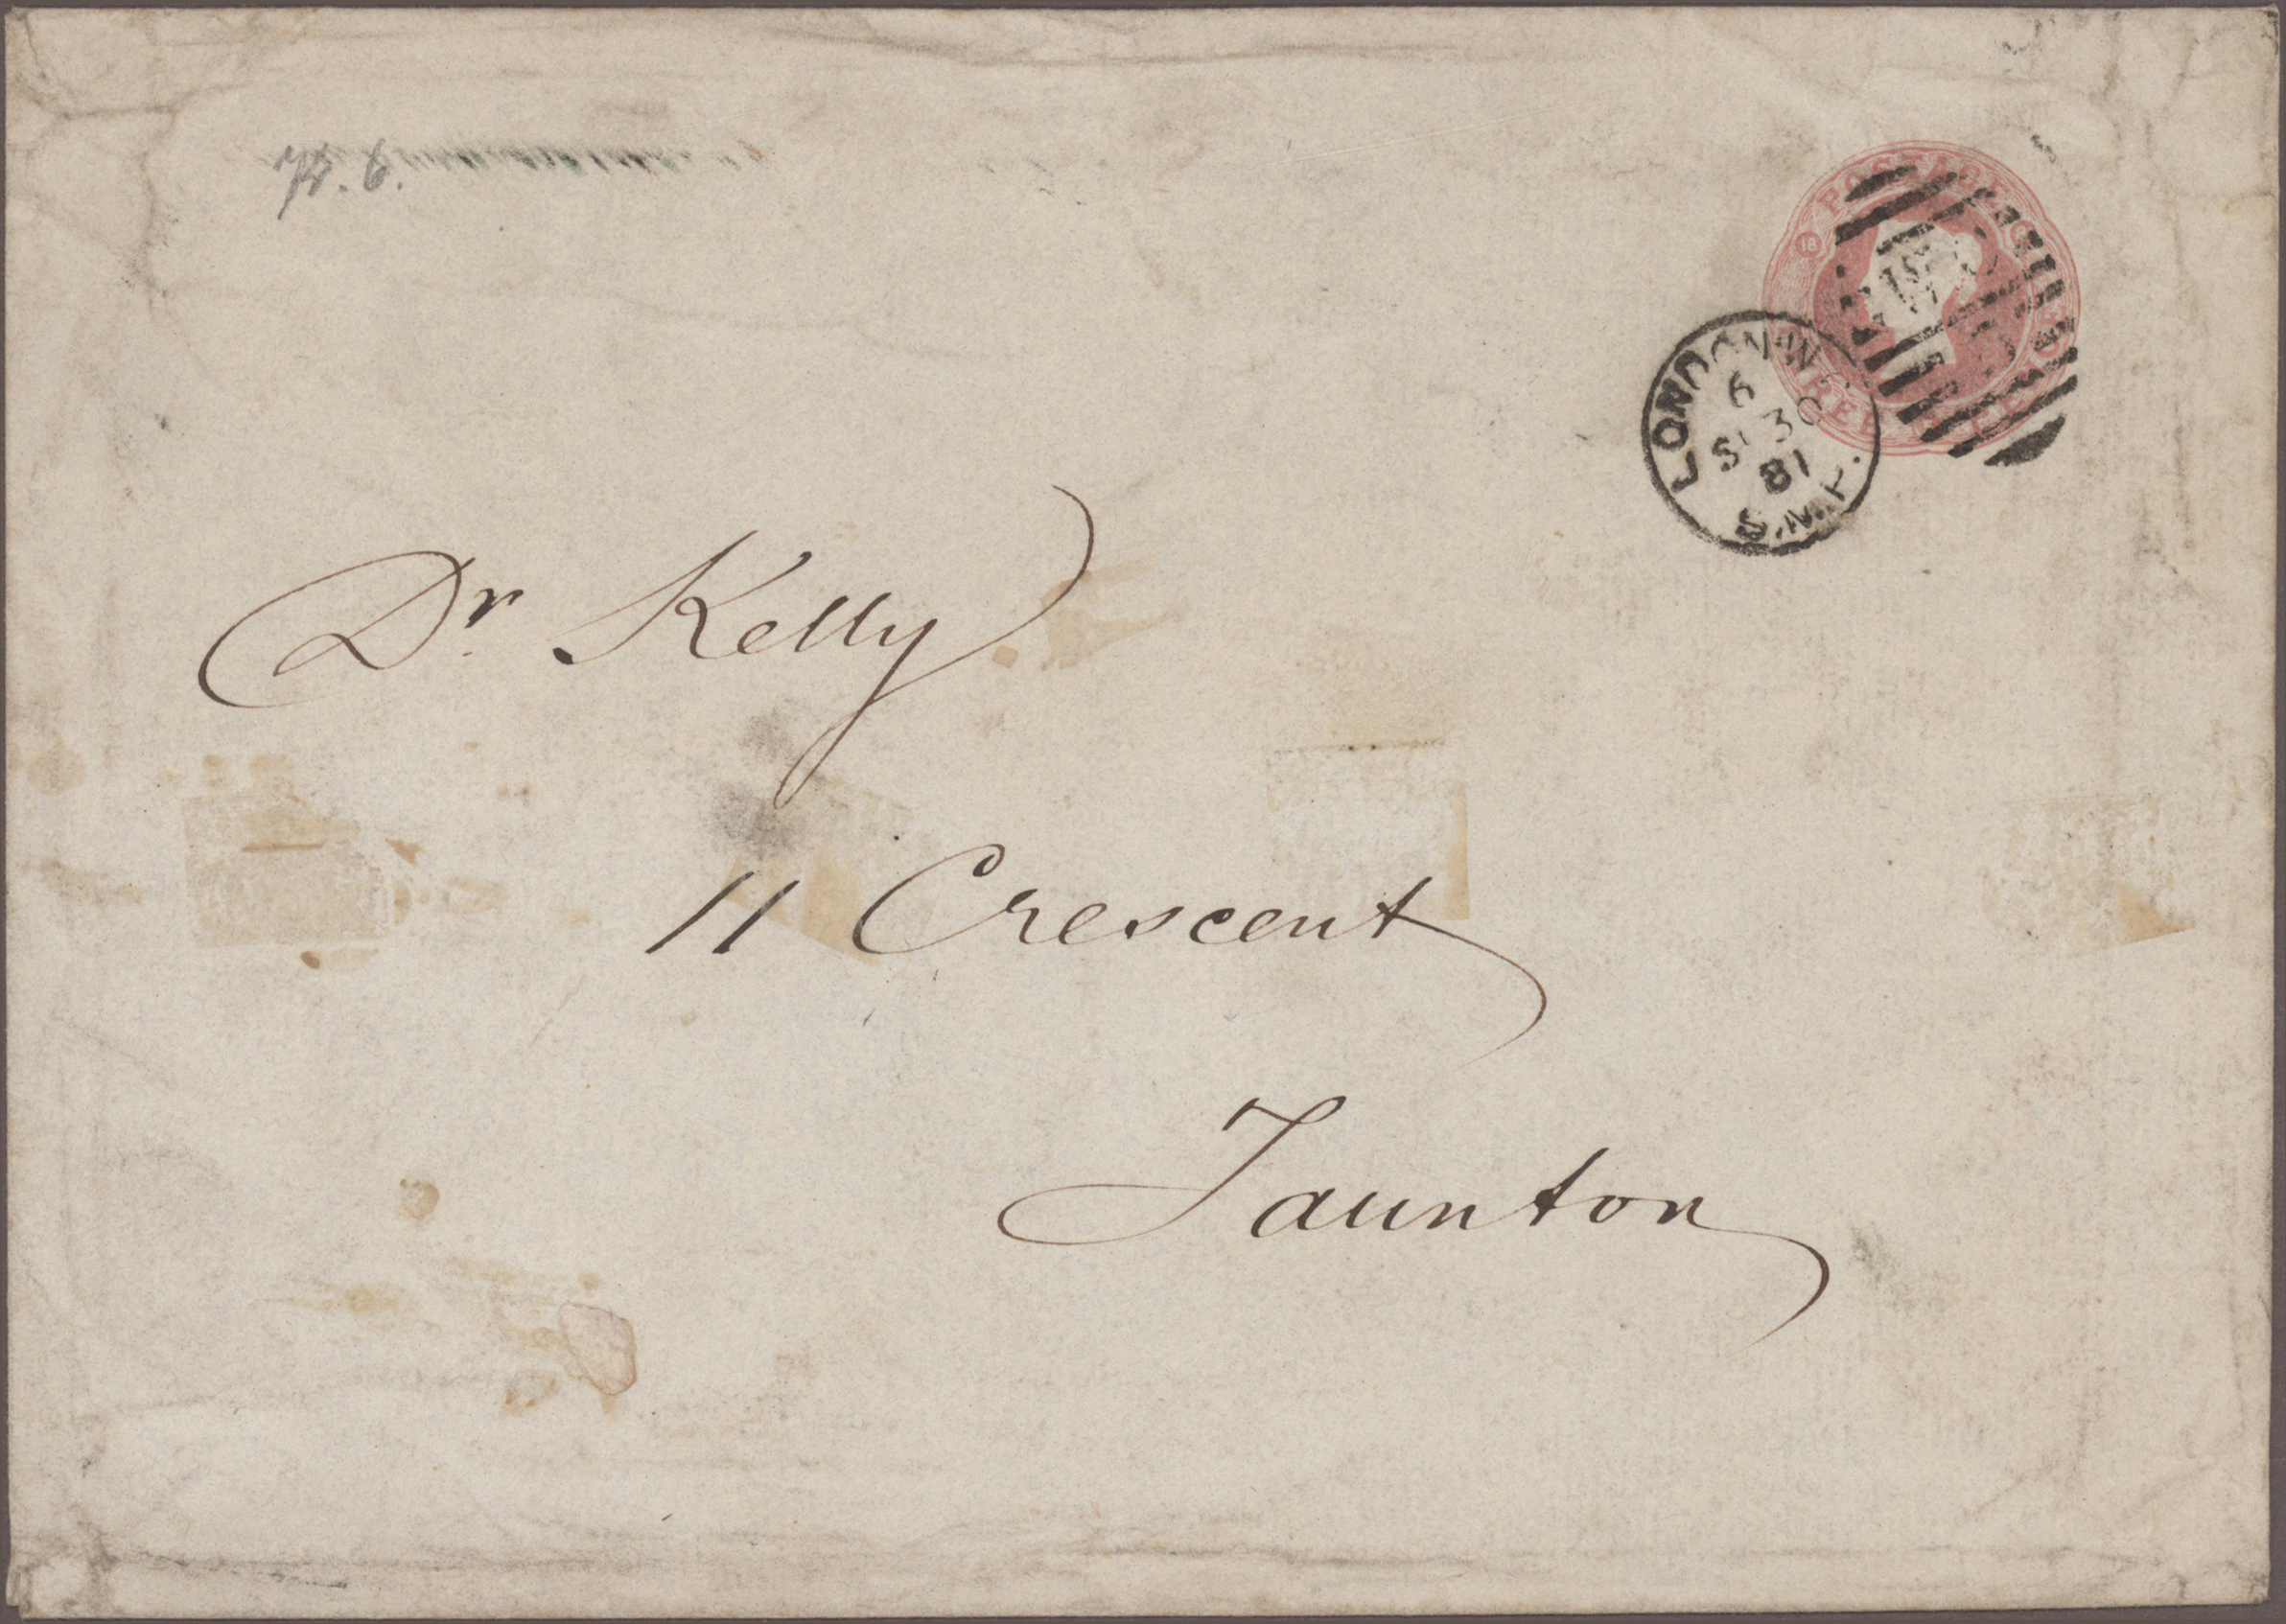 POSTAGE
18
LONDON·W.C
6
SP 30
81
S.M.P.
Dr. Kelly
11 Crescent
Taunton